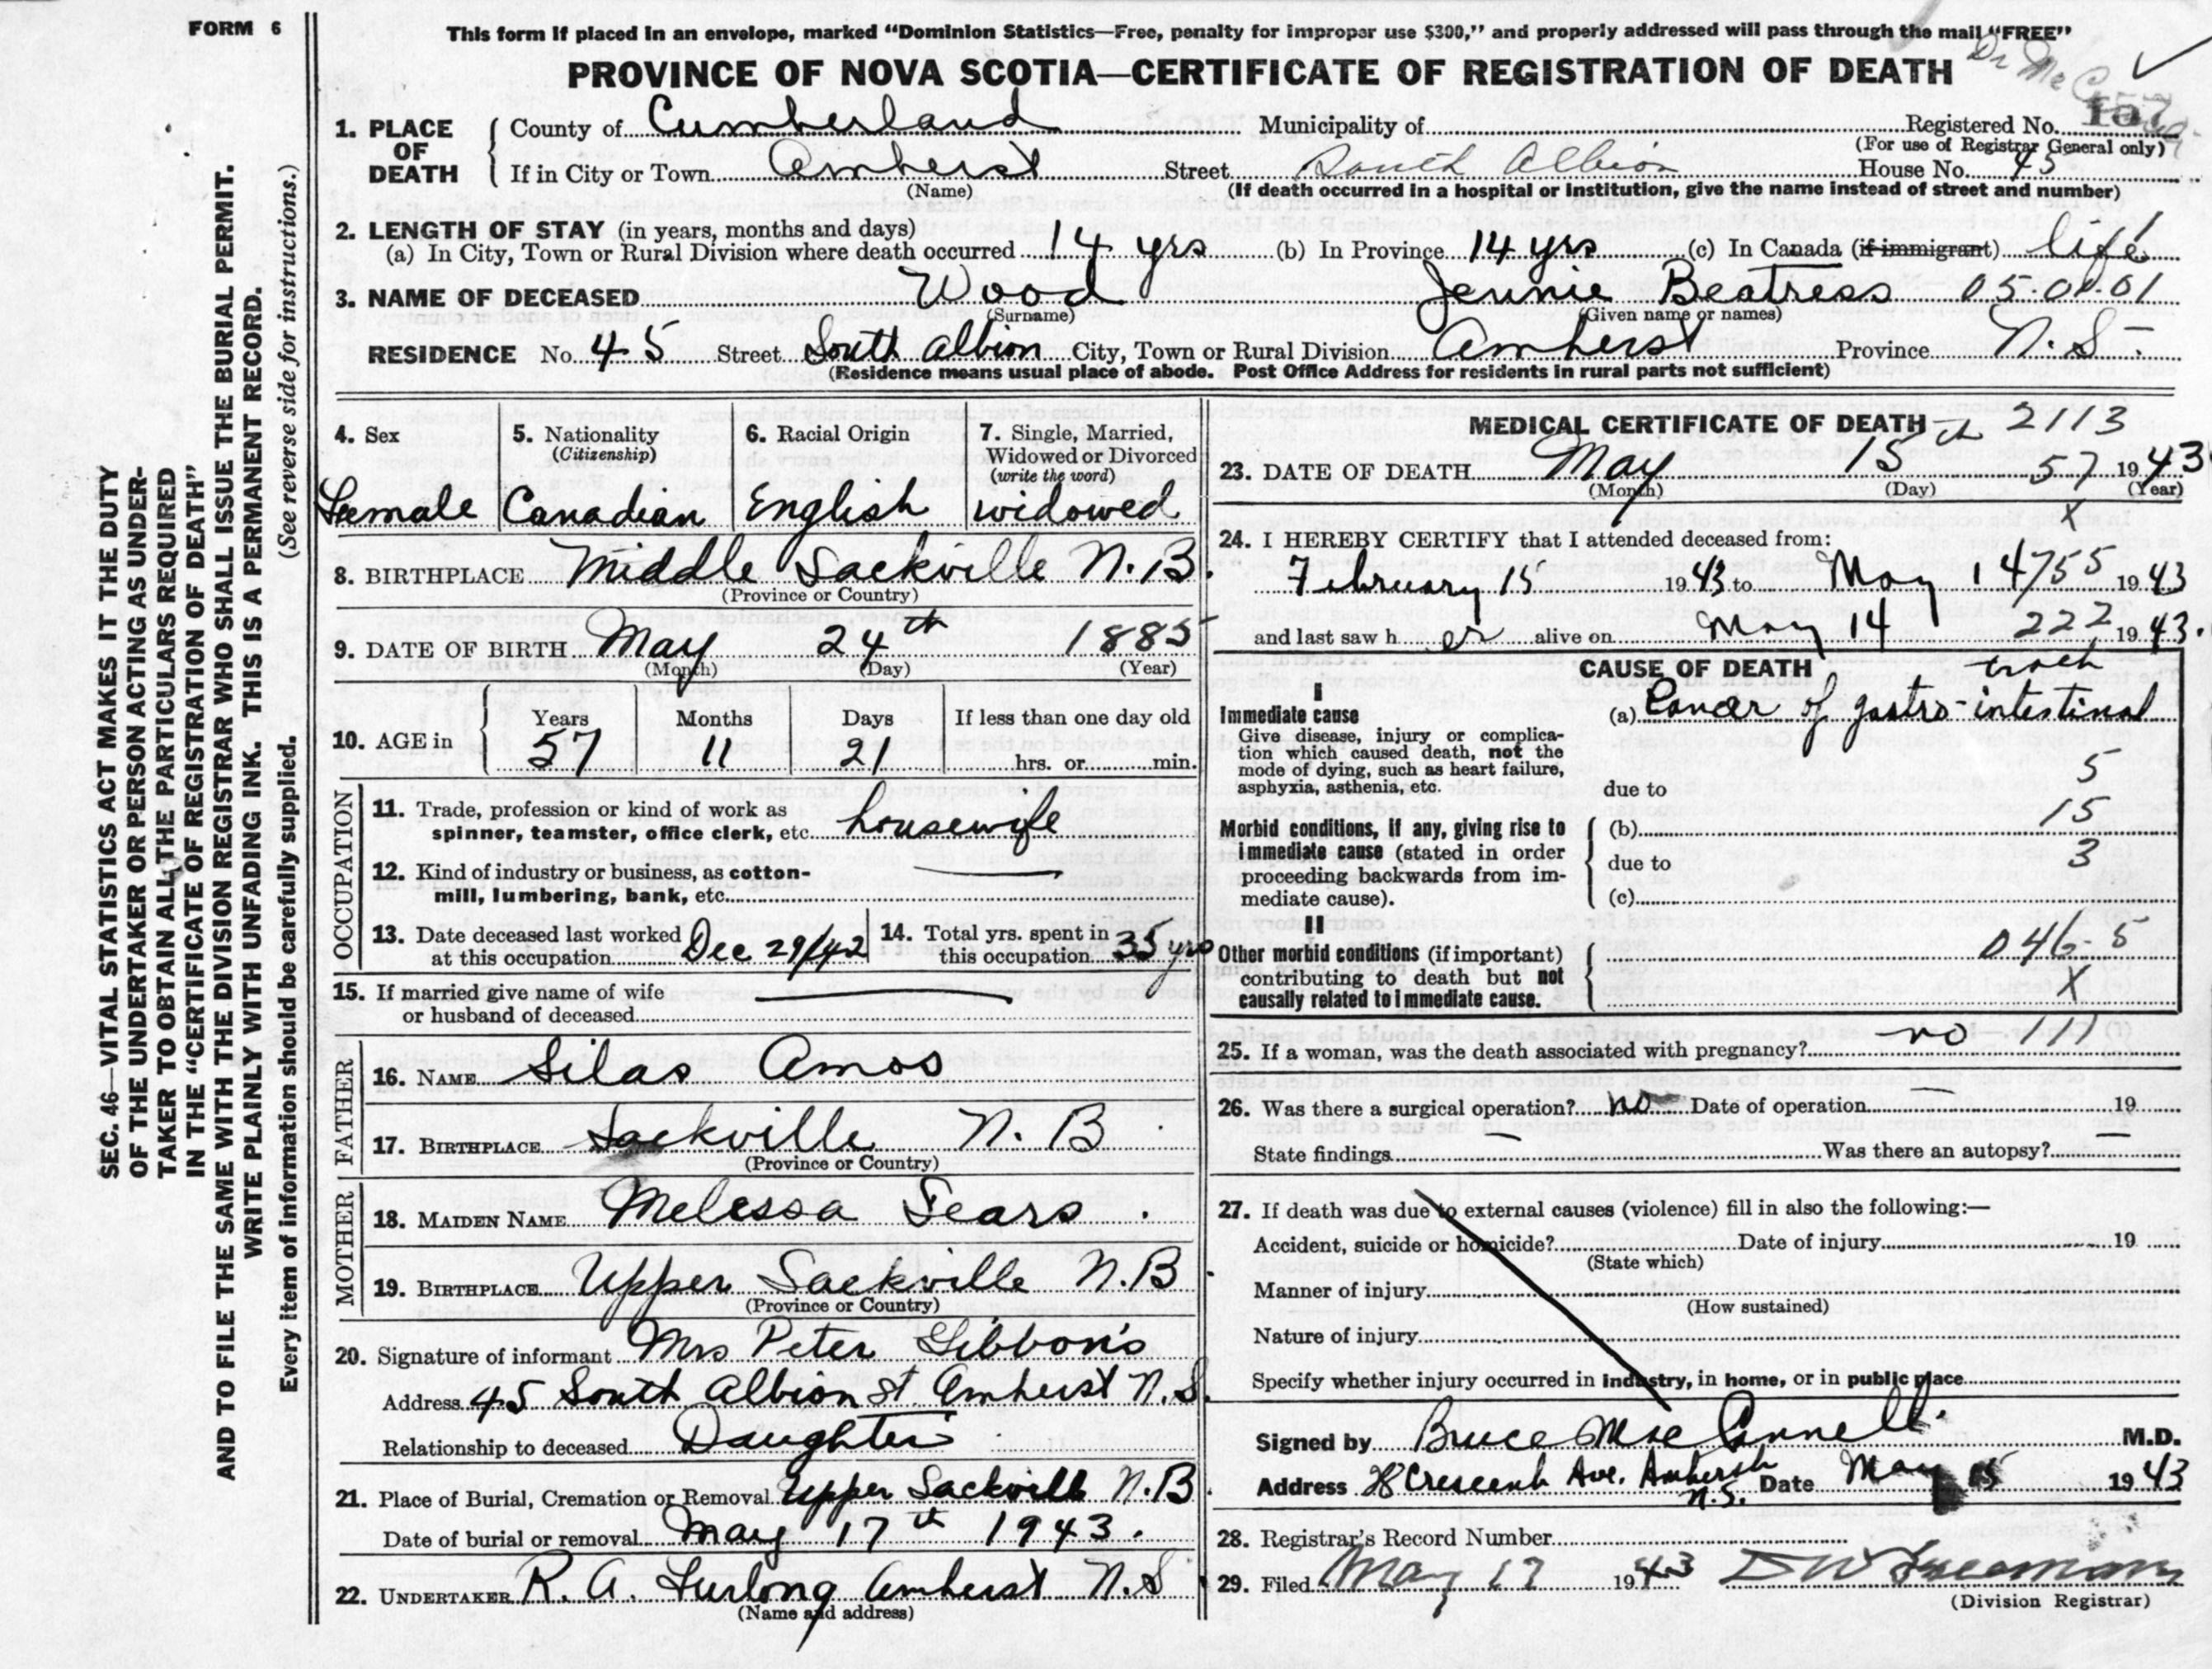 FORM 6
This form if placed in an envelope, marked “Dominion Statistics—Free, penalty for improper use $300,” and properly addressed will pass through the mail “FREE”
PROVINCE OF NOVA SCOTIA—CERTIFICATE OF REGISTRATION OF DEATH
Dr Mc
SEC. 46—VITAL STATISTICS ACT MAKES IT THE DUTY
OF THE UNDERTAKER OR PERSON ACTING AS UNDER-
TAKER TO OBTAIN ALL THE PARTICULARS REQUIRED
IN THE “CERTIFICATE OF REGISTRATION OF DEATH”
AND TO FILE THE SAME WITH THE DIVISION REGISTRAR WHO SHALL ISSUE THE BURIAL PERMIT.
WRITE PLAINLY WITH UNFADING INK. THIS IS A PERMANENT RECORD.
Every item of information should be carefully supplied. (See reverse side for instructions.)
1. PLACE OF DEATH County of Cumberland Municipality of Registered No. 157
(For use of Registrar General only)
If in City or Town Amherst Street South Albion House No. 45
(Name) (If death occurred in a hospital or institution, give the name instead of street and number)
2. LENGTH OF STAY (in years, months and days)
(a) In City, Town or Rural Division where death occurred 14 yrs (b) In Province 14 yrs (c) In Canada (if immigrant) life
3. NAME OF DECEASED Wood Jennie Beatress 05.00.01
(Surname) (Given name or names)
RESIDENCE No. 45 Street South Albion City, Town or Rural Division Amherst Province N.S.
(Residence means usual place of abode. Post Office Address for residents in rural parts not sufficient)
4. Sex 5. Nationality 6. Racial Origin 7. Single, Married,
(Citizenship) Widowed or Divorced
(write the word)
Female Canadian English widowed
8. BIRTHPLACE Middle Sackville N.B.
(Province or Country)
9. DATE OF BIRTH May 24th 1885
(Month) (Day) (Year)
10. AGE in Years Months Days If less than one day old
57 11 21 hrs. or min.
OCCUPATION
11. Trade, profession or kind of work as
spinner, teamster, office clerk, etc. housewife
12. Kind of industry or business, as cotton-
mill, lumbering, bank, etc. —
13. Date deceased last worked
at this occupation Dec 29/42
14. Total yrs. spent in
this occupation 35 yrs
15. If married give name of wife —
or husband of deceased
FATHER
16. NAME Silas Amos
17. BIRTHPLACE Sackville N.B.
(Province or Country)
MOTHER
18. MAIDEN NAME Melessa Sears.
19. BIRTHPLACE Upper Sackville N.B.
(Province or Country)
20. Signature of informant Mrs Peter Gibbons
Address 45 South Albion st Amherst N.S.
Relationship to deceased Daughter
21. Place of Burial, Cremation or Removal Upper Sackvill N.B.
Date of burial or removal May 17th 1943.
22. UNDERTAKER R. A. Furlong Amherst N.S.
(Name and address)
MEDICAL CERTIFICATE OF DEATH 2113
23. DATE OF DEATH May 15th 57 1943
(Month) (Day) (Year)
X
24. I HEREBY CERTIFY that I attended deceased from:
February 15 1943 to May 14 755 1943
and last saw her alive on May 14 222 1943.
CAUSE OF DEATH
I
Immediate cause
Give disease, injury or complica-
tion which caused death, not the
mode of dying, such as heart failure,
asphyxia, asthenia, etc.
(a) Cancer of gastro-intestinal
5
due to
Morbid conditions, if any, giving rise to
immediate cause (stated in order
proceeding backwards from im-
mediate cause).
(b) 15
due to 3
(c)
II
Other morbid conditions (if important)
contributing to death but not
causally related to immediate cause.
046-5
X
25. If a woman, was the death associated with pregnancy? no 111
26. Was there a surgical operation? no Date of operation — 19
State findings — Was there an autopsy? —
27. If death was due to external causes (violence) fill in also the following:—
Accident, suicide or homicide? Date of injury 19
(State which)
Manner of injury
(How sustained)
Nature of injury
Specify whether injury occurred in industry, in home, or in public place
Signed by Bruce M.D.
Address Crescent Ave. Amherst N.S. Date May 15 1943
28. Registrar's Record Number
29. Filed May 17 1943 D W Freeman
(Division Registrar)